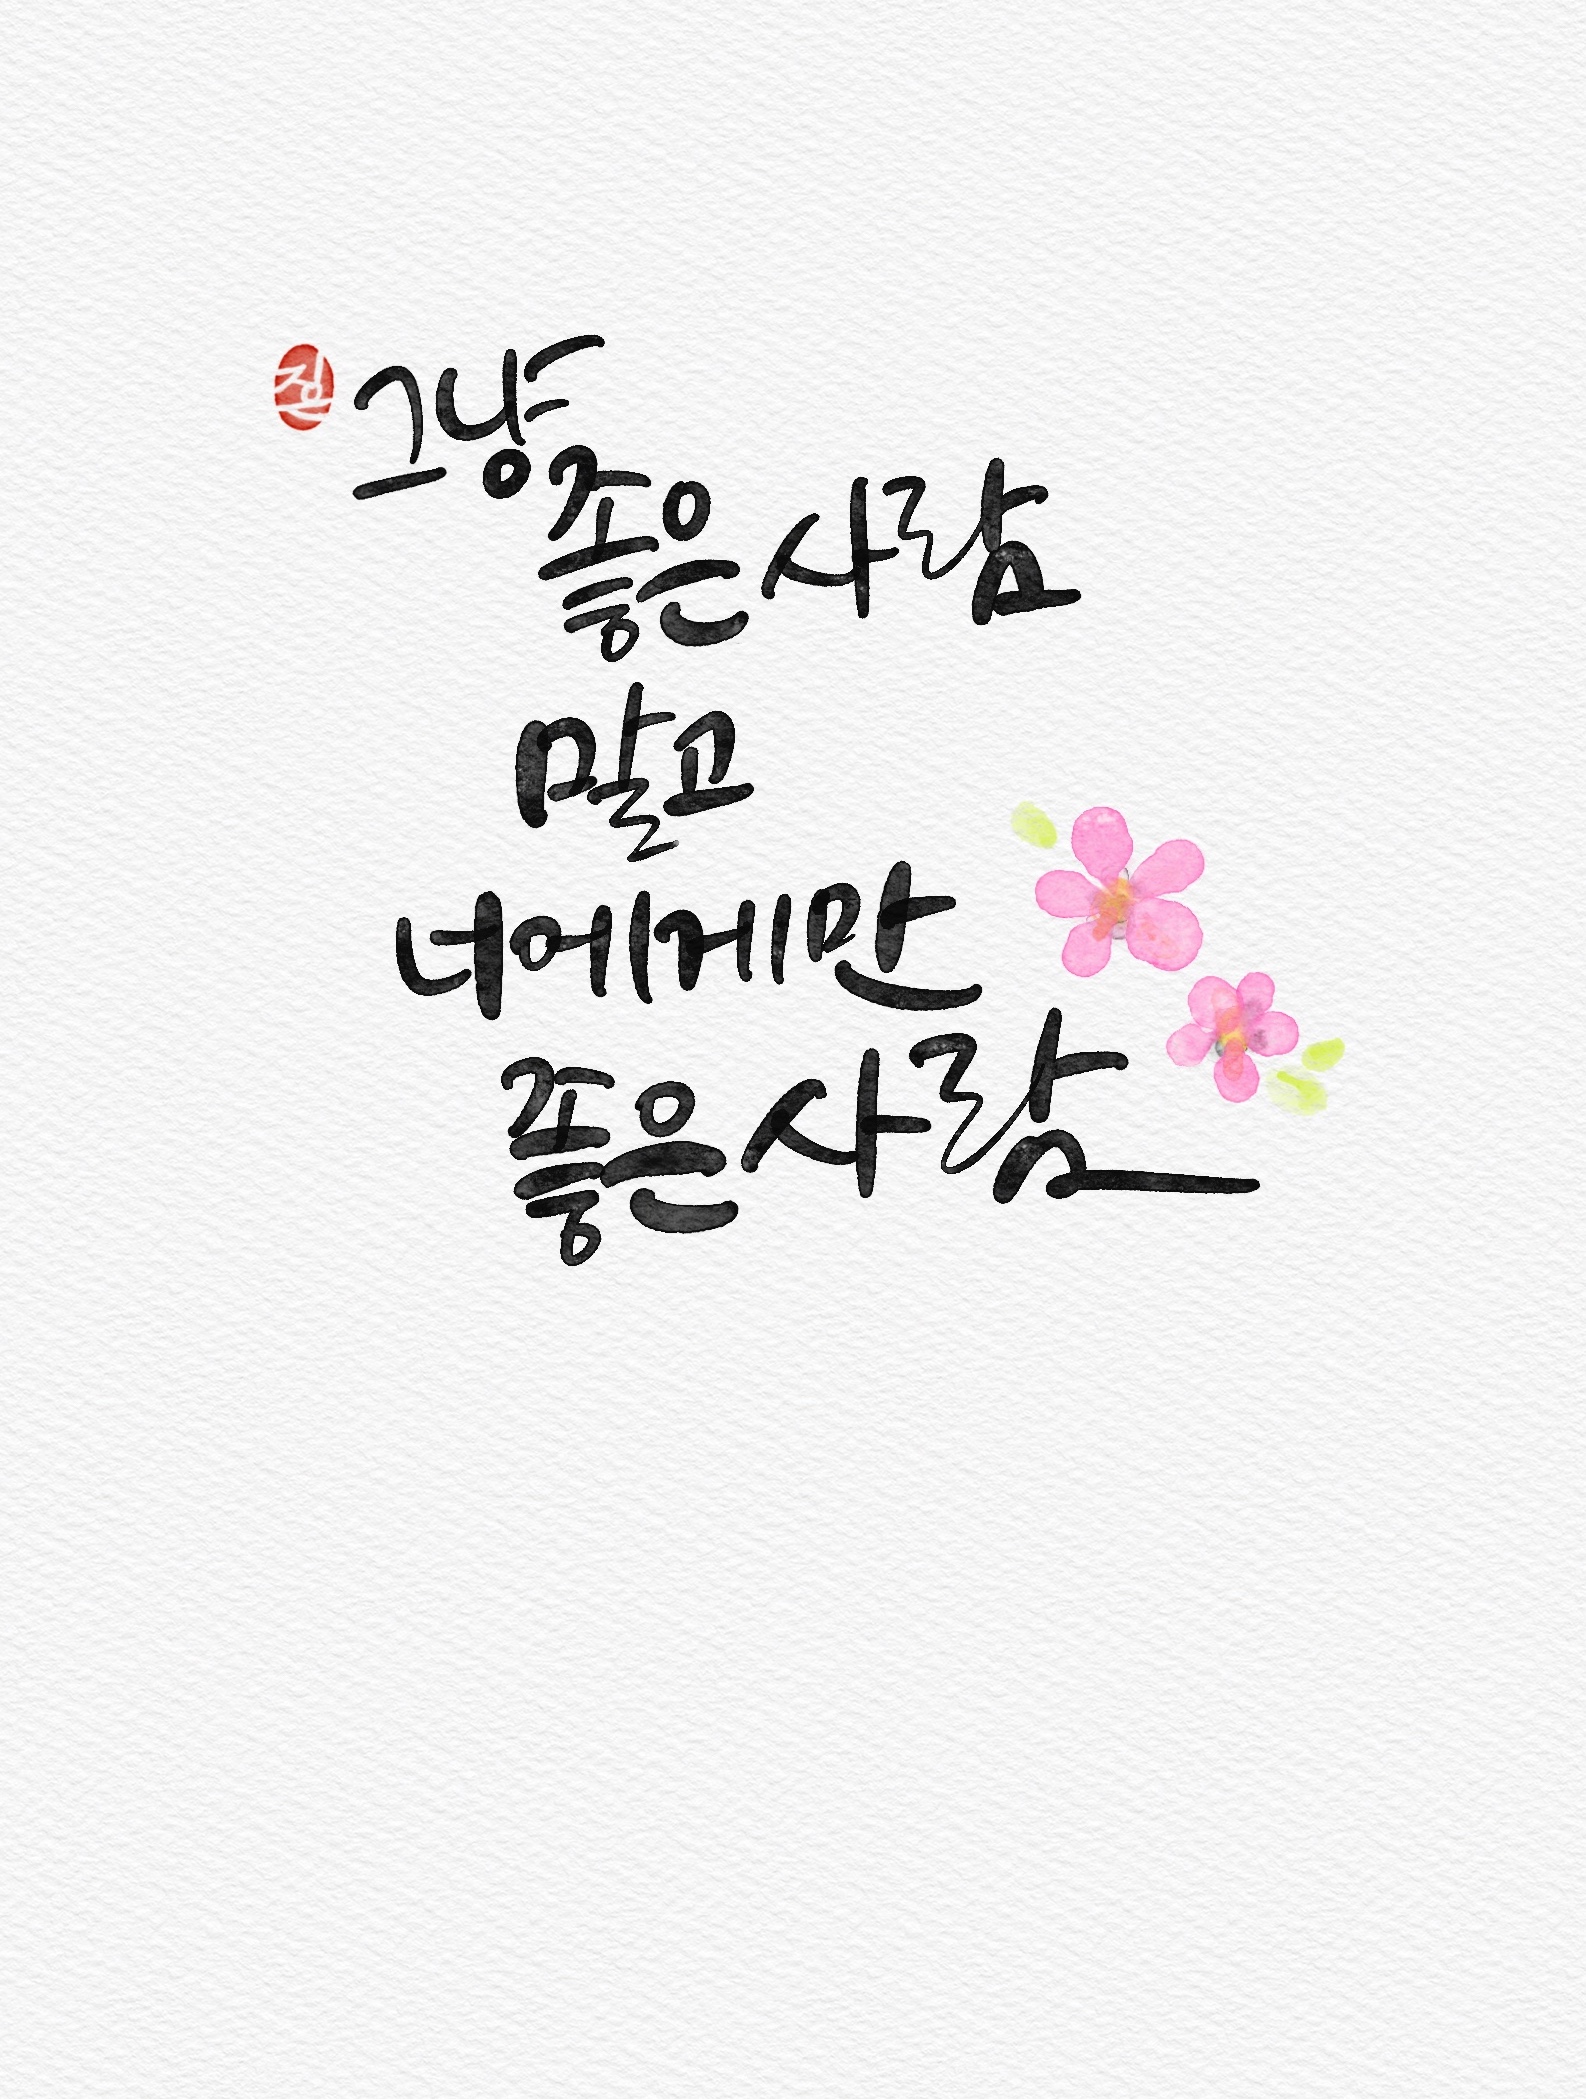 진
그냥
좋은 사람
말고
너에게만
좋은 사람